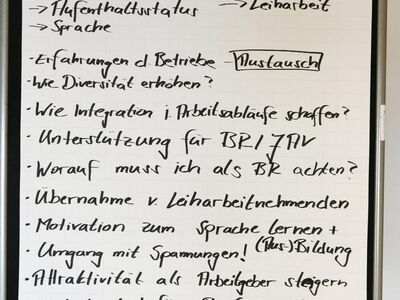 → Aufenthaltsstatus → Leiharbeit
→ Sprache
· Erfahrungen d. Betriebe - Austausch
· Wie Diversität erhöhen?
· Wie Integration i. Arbeitsabläufe schaffen?
· Unterstützung für BR/JAV
· Worauf muss ich als BR achten?
· Übernahme v. Leiharbeitnehmenden
· Motivation zum Sprache lernen +
(Aus-)Bildung
· Umgang mit Spannungen!
· Attraktivität als Arbeitgeber steigern